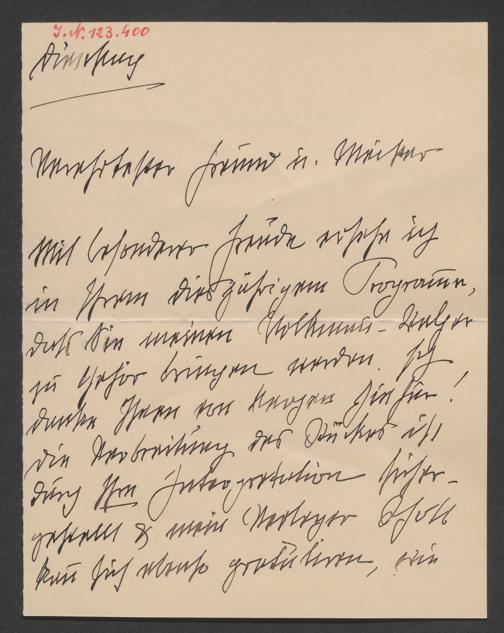 I. N. 123.400
Dirschung
Verehrtester Freund u. Meister
Mit besonderer Freude ersehe ich
in Ihrem diesjährigem Programm,
dass Sie meinen Volkmann-Walzer
zu Gehör bringen werden. Ich
danke Ihnen von Herzen hiefür!
die Verbreitung des Stückes ist
durch Ihre Interpretation sicher-
gestellt & mein Verleger Schott
kann sich ebenso gratuliren, wie